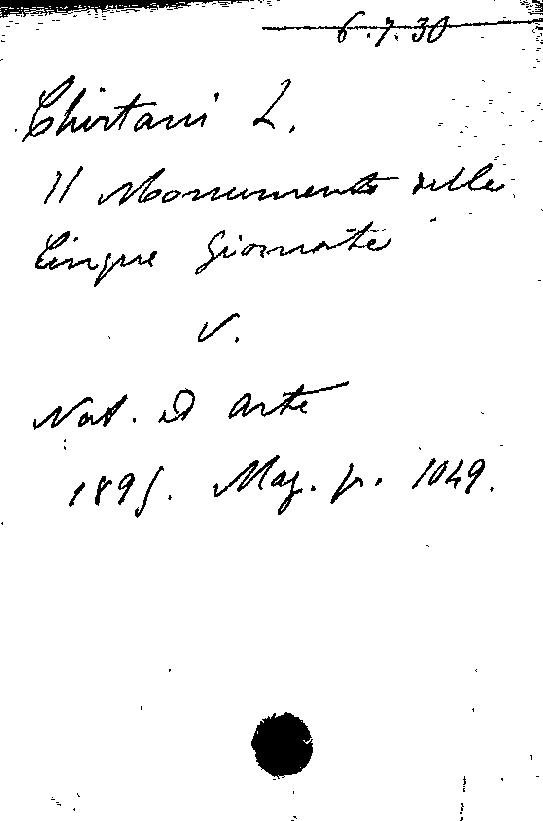 6.7.30
Chirtani L.
Il Monumento delle
Cinque Giornate
V.
Nat. ed Arte
1895. Mag. p. 1049.